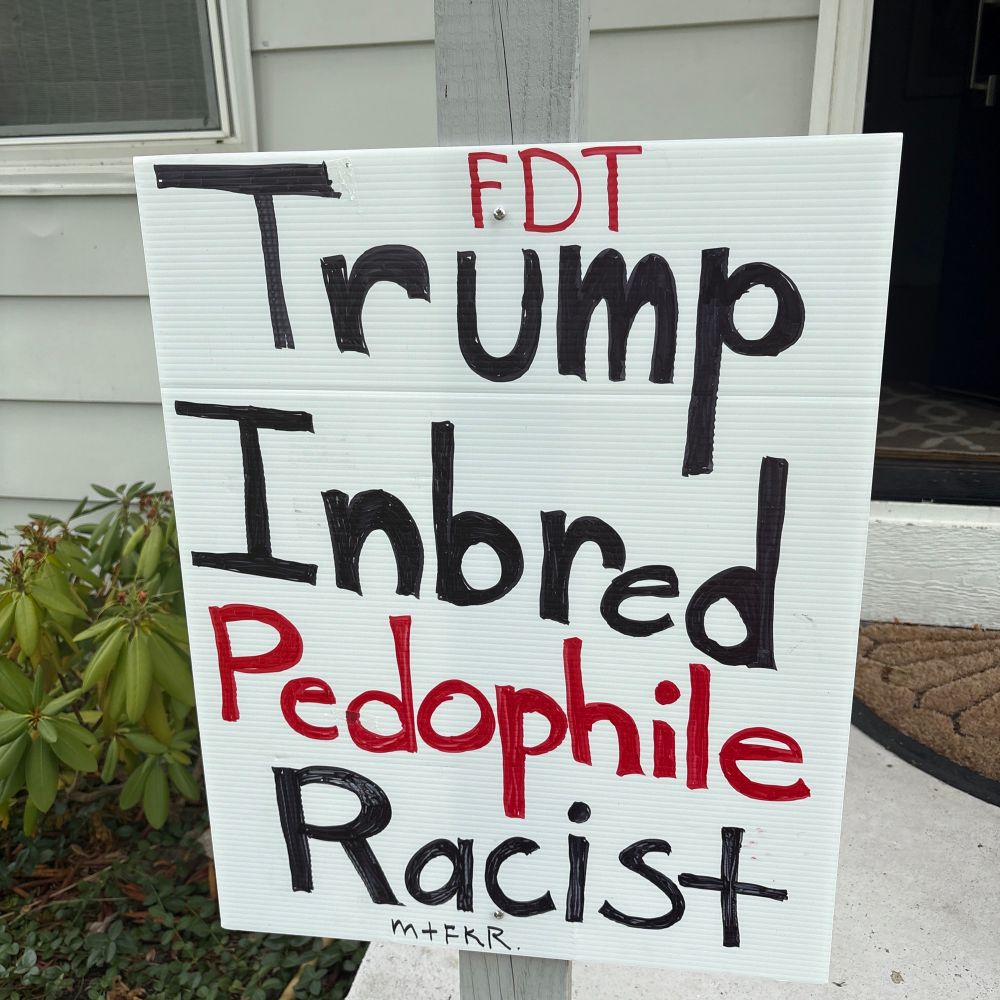 FDT
Trump
Inbred
Pedophile
Racist
mtFKR.